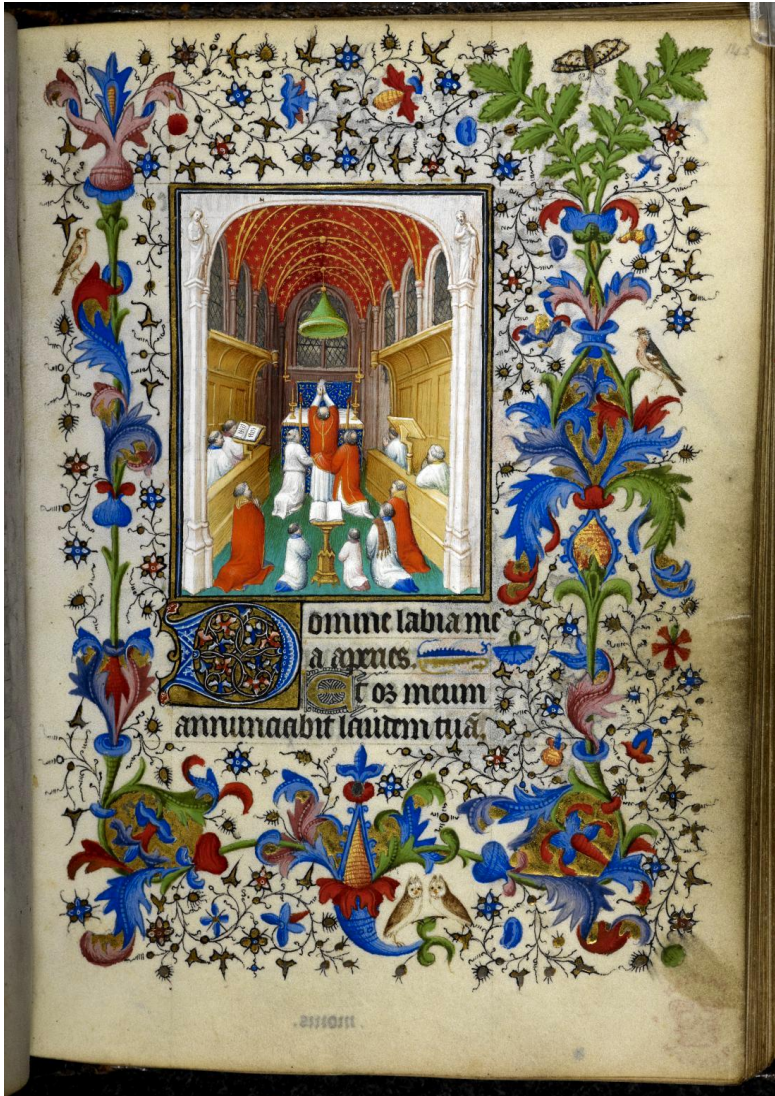 145
Domine labia me
a aperies.
Et os meum
annunciabit laudem tuā.